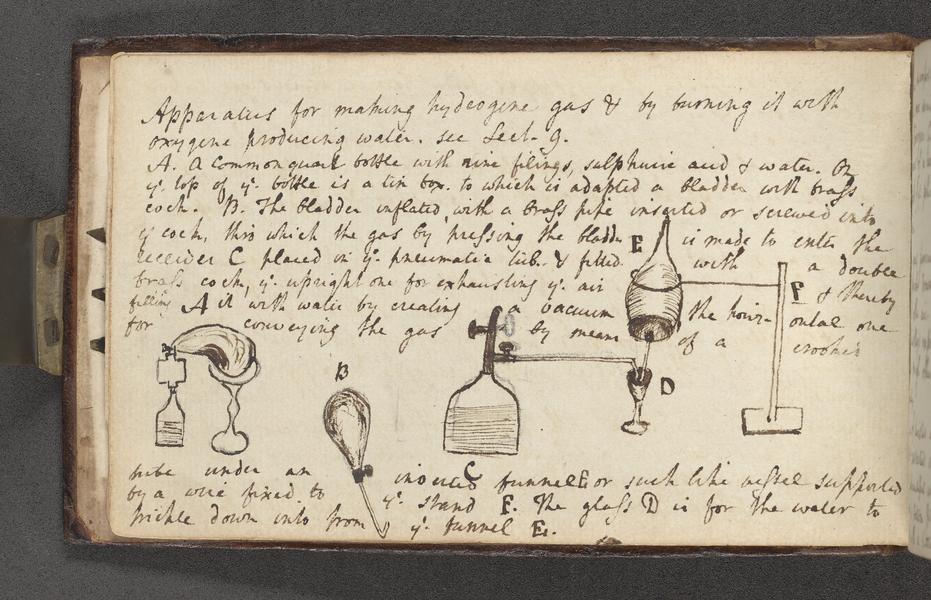 Apparatus for making hydrogine gas & by burning it with
oxygine producing water. see Lect. 9.
A. a Common quart bottle with nine filings, sulphuric acid & water. On
ye. top of ye. bottle is a tin box. to which is adapted a bladder with brass
cock. B. The bladder inflated with a brass pipe inserted or screwed into
ye cock, thro which the gas by pressing the bladder is made to enter the
receiver C placed in ye. pneumatic tub. & filled with a double
brass cock, ye. upright one for exhausting ye. air & thereby
filling A it with water by creating a vacuum the horiz- ontal one
for conveying the gas by means of a crooked
tube under an inverted funnel E or such like vessel supported
by a wire fixed to ye. stand F. The glass D is for the water to
trickle down into from ye. funnel E.
E
F
B
D
C